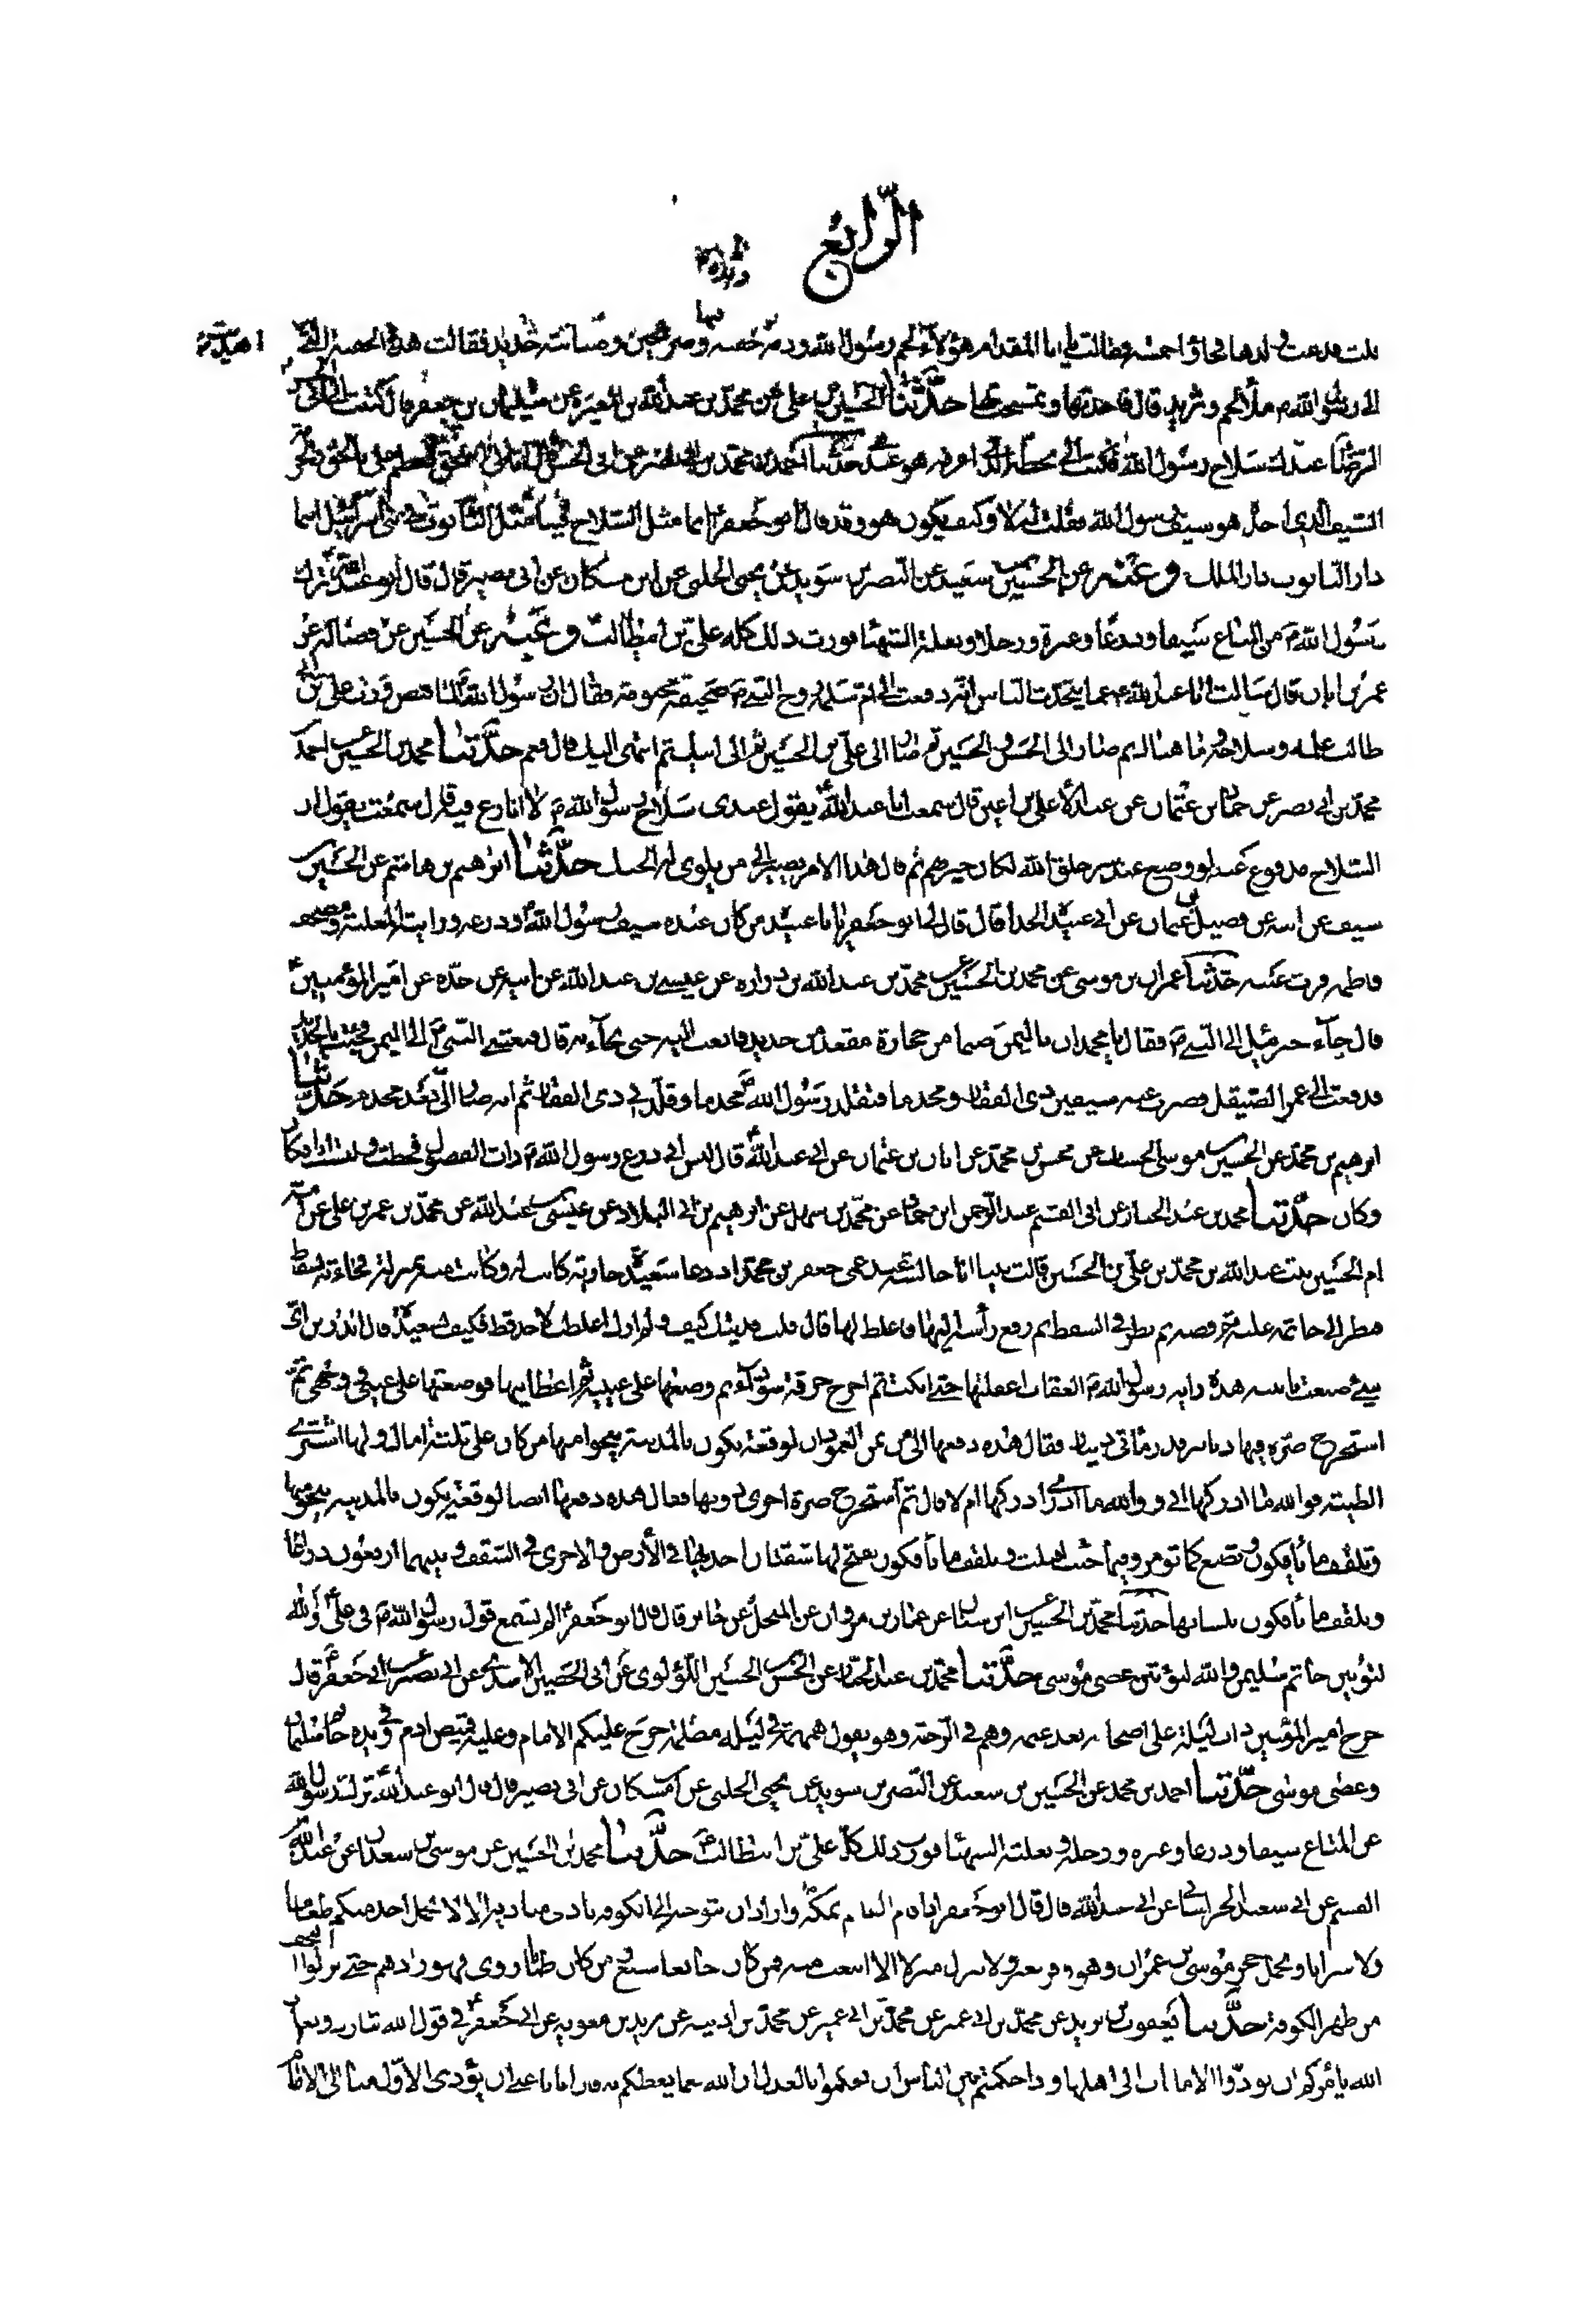 الرابع
فدعت ولدها فجاؤا خمسة فقالت يا ابا المقدام هؤلاء لحم رسول الله ودمه فقالت هذه الجفنة التي
الى رسول الله ملأ لحم وثريد قال فاخذتها وتمسحت بها حدثنا الحسن بن على عن محمد بن عبد الله بن المغيرة عن سليمان بن جعفر قال كتبت الى
الرضا عندك سلاح رسول الله فكتب الى بخطه الذى اعرفه هو عندى حدثنا احمد بن محمد عن ابى الحسن
السيف الذى اخذ هو سيف رسول الله فقلت له لا وكيف يكون هو وقد قال ابو جعفر انما مثل السلاح فينا مثل التابوت فى بنى اسرائيل اينما
دار التابوت دار الملك وعنه عن الحسين بن سعيد عن النضر بن سويد عن يحيى الحلبى عن ابن مسكان عن ابى بصير قال قال ابو عبد الله ترك
رسول الله من المتاع سيفا ودرعا وعنزة ورحلا وبغلته الشهبا فورث ذلك كله على بن ابيطالب وعنه عن الحسين عن فضالة عن
عمر بن ابان قال سالت ابا عبد الله عما يتحدث الناس انه دفعت الى ام سلمة زوج النبى صحيفة مختومة فقال ان رسول الله لما قبض ورث على بن ابى
طالب علمه وسلاحه وما هناك ثم صار الى الحسن والحسين ثم صار الى على بن الحسين ثم الى ابنك ثم انتهى اليك قال نعم حدثنا محمد بن الحسين عن احمد بن
محمد بن ابى نصر عن حماد بن عثمان عن عبد الاعلى بن اعين قال سمعت ابا عبد الله يقول عندى سلاح رسول الله لا انازع فيه قال سمعت يقول ان
السلاح مدفوع عنه لو وضع عند شر خلق الله لكان خيرهم ثم قال هذا الامر يصير الى من يلوى له الحنك حدثنا ابرهيم بن هاشم عن الحسين بن
سيف عن ابيه عن فضيل بن عثمان عن ابى عبيدة الحذا قال قال لى ابو جعفر يا ابا عبيدة من كان عنده سيف رسول الله ودرعه ورايته المغلبة ومصحف
فاطمة قرت عينه حدثنا عمران بن موسى عن محمد بن الحسين عن محمد بن عبد الله بن زراره عن عيسى بن عبد الله عن ابيه عن جده عن امير المؤمنين
قال جاء جبرئيل الى النبى فقال يا محمد ان باليمن صنما من حجارة مقعد من حديد فابعث اليه حتى يجاء به قال فبعثنى النبى الى اليمن فجئت بالحديد
فدفعت الى عمر الصيقل فضرب عنه سيفين ذى الفقار ومخذما فتقلد رسول الله مخذما وقلدنى ذى الفقار ثم انه صار الى بعد مخذم حدثنا
ابرهيم بن محمد عن الحسين بن موسى الخشاب عن محسن بن محمد عن ابان بن عثمان عن ابى عبد الله قال لبس ابى درع رسول الله ذات الفضول فخطت ولبستها انا فكان
وكان حدثنا محمد بن عبد الجبار عن ابى القسم عبد الرحمن ابن حماد عن محمد بن سهل عن ابرهيم بن ابى البلاد عن عيسى بن عبد الله عن محمد بن عمر بن على عن امه
ام الحسين بنت عبد الله بن محمد بن على بن الحسين قالت بينا انا جالسة عند عمى جعفر بن محمد اذ دعا سعيدة جارية كانت له وكانت منه بمنزلة فجاءته بسفط
فنظر الى خاتمه عليه ثم فضه ثم نظر فى السفط ثم رفع رأسه اليها فاغلظ لها قال قلت فديتك كيف ولم ارك اغلظت لاحد قط فكيف بسعيدة قال اتدرين اى
شىء صنعت يا بنية هذه راية رسول الله العقاب اغفلتها حتى ائتكلت ثم اخرج خرقة سوداء ثم وضعها على عينيه ثم اعطانيها فوضعتها على عينى ووجهى ثم
استخرج صرة فيها دنانير قدر مأتى دينار فقال هذه دفعها الى ابى من ثمن العمودان لوقعة يكون بالمدينة ينجوا منها من كان على ثلثة اميال ولها اشترى
الطيبة فوالله ما ادركها ابى ووالله ما ادرى ادركها ام لا قال ثم استخرج صرة اخرى دونها فقال هذه دفعها ايضا لوقعة يكون بالمدينة ينجو منها
وتلقف ما يأفكون وتصنع كما تؤمر وانها حيث اقبلت تلقف ما يأفكون تفتح لها شفتان احديهما فى الأرض والاخرى فى السقف وبينهما اربعون ذراعا
وتلقف ما يأفكون بلسانها حدثنا محمد بن الحسين عن ابن سنان عن عمار بن مروان عن المنخل عن جابر قال قال ابو جعفر الم تسمع قول رسول الله فى على والله
لتؤتين خاتم سليمن والله لتؤتين عصى موسى حدثنا محمد بن عبد الجبار عن الحسن بن الحسين اللؤلؤى عن ابى الحصين الاسدى عن ابى بصير عن ابى جعفر قال
خرج امير المؤمنين ذات ليلة على اصحابه بعد عتمة وهم فى الرحبة وهو يقول همهمة فى ليلة مظلمة خرج عليكم الامام وعليه قميص ادم وفى يده خاتم سليمان
وعصى موسى حدثنا احمد بن محمد عن الحسين بن سعيد عن النضر بن سويد عن يحيى الحلبى عن ابن مسكان عن ابى بصير قال قال ابو عبد الله ترك رسول الله
عن المتاع سيفا ودرعا وعنزه ورحلا وبغلته الشهبا فورث ذلك كله على بن ابيطالب حدثنا محمد بن الحسين عن موسى بن سعدان عن عبد الله
القسم عن ابى سعيد الخراسانى عن ابى عبد الله قال قال ابو جعفر اذا قام القائم بمكة واراد ان يتوجه الى الكوفه نادى مناديه الا لا يحمل احد منكم طعاما
ولا شرابا ويحمل حجر موسى بن عمران وهو وقر بعير ولا ينزل منزلا الا انبعث عين منه فمن كان جايعا شبع ومن كان ظاميا روى فهو زادهم حتى نزلوا النجف
من ظهر الكوفة حدثنا يعقوب بن يزيد عن محمد بن ابى عمير عن محمد بن اذينه عن بريد بن معويه عن ابى جعفر فى قول الله تبارك وتعالى ان
الله يأمركم ان تودوا الامانات الى اهلها واذا حكمتم بين الناس ان تحكموا بالعدل ان الله نعما يعظكم به قال ايانا عنى ان يؤدى الاول منا الى الامام